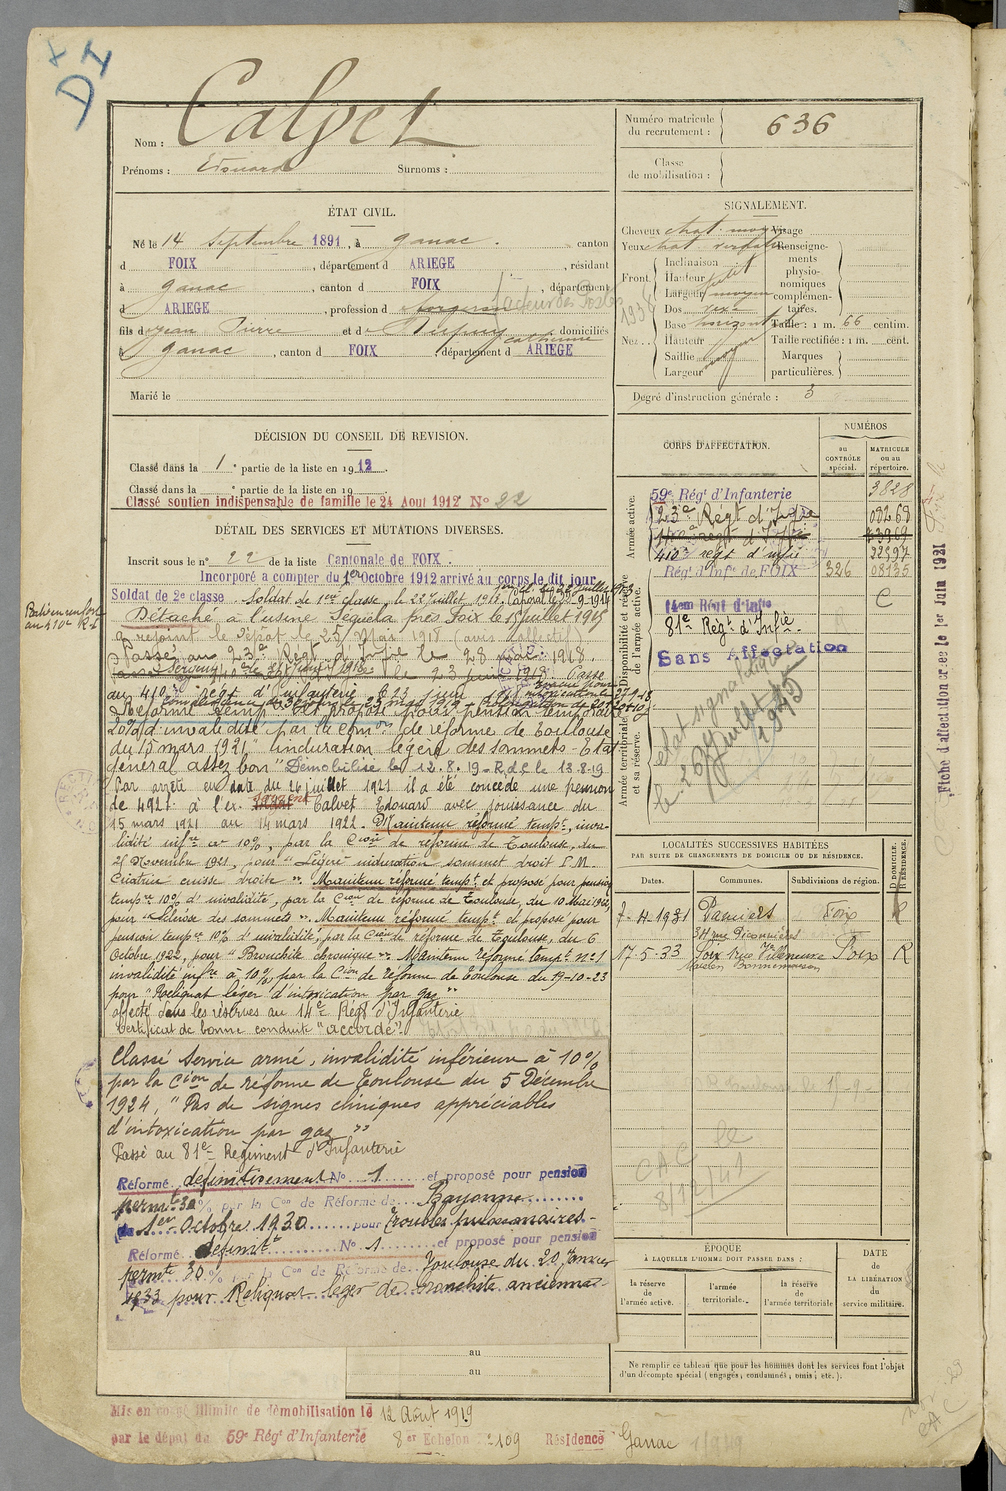 X
D I
Nom : Calvet
Prénoms : Edouard Surnoms :
Numéro matricule du recrutement : 636
Classe de mobilisation :
ÉTAT CIVIL.
Né le 14 Septembre 1891, à Ganac. canton
d FOIX, département d ARIEGE, résidant
à Ganac, canton d FOIX, département
d ARIEGE, profession d facteur des Postes
fils de Jean Pierre et de Dupuy Catherine domiciliés
à Ganac, canton d FOIX, département d ARIEGE
Marié le
SIGNALEMENT.
Cheveux chat. moyen
Yeux chat.
Front. Inclinaison
Hauteur petit
Largeur moyen
Nez.. Dos rexe
Base horizont
Hauteur
Saillie moyen
Largeur
Visage
Renseignements physionomiques complémentaires.
Taille : 1 m. 66 centim.
Taille rectifiée : 1 m. cent.
Marques particulières.
Degré d'instruction générale : 3
DÉCISION DU CONSEIL DE REVISION.
Classé dans la 1e partie de la liste en 1912.
Classé dans la e partie de la liste en 19
Classé soutien indispensable de famille le 24 Aout 1912 No 22
DÉTAIL DES SERVICES ET MUTATIONS DIVERSES.
Inscrit sous le no 22 de la liste Cantonale de FOIX.
Incorporé a compter du 1er Octobre 1912 arrivé au corps le dit jour
Soldat de 2e classe. Soldat de 1ere classe, le 28 Juillet 1913. Caporal le 20-9-1914
Détaché à l'usine Sequela près Foix le 15 Juillet 1915
a rejoint le dépôt le 25 Mai 1918 (avis collectif)
Passé au 23e Régt d'Infie le 28 1918.
au 410e regt d'Infanterie le 23 juin
Réformé temp et proposé pour pension temporaire
20% d'invalidité par la comon de réforme de Toulouse
du 15 mars 1921 "induration légère des sommets - Etat
général assez bon" Démobilisé le 12.8.19 R.d.c le 13-8-19
Par arrêté en date du 26 juillet 1921 il a été concédé une pension
de 492f à l'ex. Calvet Edouard avec jouissance du
15 mars 1921 au 14 mars 1922. Maintenu réformé tempre, inva-
lidité infre à 10%, par la Cion de réforme de Toulouse, du
25 Novembre 1921, pour "Légère induration sommet droit P.M.
Cicatrice cuisse droite". Maintenu réformé tempt et proposé pour pension
tempre 10% d'invalidité, par la Cion de réforme de Toulouse, du 10 Mai 1922,
pour "Sclérose des sommets". Maintenu réformé tempt et proposé pour
pension tempre 10% d'invalidité, par la Cion de réforme de Toulouse, du 6
Octobre 1922, pour "Bronchite chronique". Maintenu réformé tempt no 1
invalidité infre à 10% par la Cion de réforme de Toulouse du 19-10-23
pour "Reliquat léger d'intoxication par gaz"
affecté dans les réserves au 14e Régt d'Infanterie
Certificat de bonne conduite "accordé".
Classé Service armé, invalidité inférieure à 10%
par la Cion de réforme de Toulouse du 5 Décembre
1924, "Pas de signes cliniques appréciables
d'intoxication par gaz"
Passé au 81e Régiment d'Infanterie
Réformé définitivement No 1 et proposé pour pension
permte 30% par la Con de Réforme de Bayonne
du 1er Octobre 1930 pour Troubles pulmonaires -
Réformé définitt No 1 et proposé pour pension
permte 30% par la Con de Réforme de Toulouse du 20 Janvier
1933 pour Reliquat léger de bronchite ancienne
au
au
Mis en congé illimité de démobilisation le 12 Août 1919
par le dépôt du 59e Régt d'Infanterie 8er Echelon No 2109 Résidence Ganac
CORPS D'AFFECTATION.
NUMÉROS
au CONTRÔLE spécial.
MATRICULE ou au répertoire.
Armée active.
59e Régt d'Infanterie 3828
23e Régt d'Infie 08268
410e regt d'infie 22397
Disponibilité et réserve de l'armée active.
Régt d'Infie de FOIX 326 08135
14em Régt d'Infie C
81e Régt d'Infie
Sans Affectation
Armée territoriale et sa réserve.
Etat signalétique
le 26 Juillet 1945
Fiche d'affectation créée le 1er Juin 1921
LOCALITÉS SUCCESSIVES HABITÉES
PAR SUITE DE CHANGEMENTS DE DOMICILE OU DE RÉSIDENCE.
Dates. Communes. Subdivisions de région. D DOMICILE. R RÉSIDENCE.
7-4-1931 Pamiers Foix R
17-5-33 Foix 1 rue Villeneuve Foix R
Maison Bonnemaison
CAC le
8/12/41
ÉPOQUE
À LAQUELLE L'HOMME DOIT PASSER DANS :
la réserve de l'armée active.
l'armée territoriale.
la réserve de l'armée territoriale
DATE DE LA LIBÉRATION du service militaire.
Ne remplir ce tableau que pour les hommes dont les services font l'objet
d'un décompte spécial (engagés, condamnés, omis, etc.).